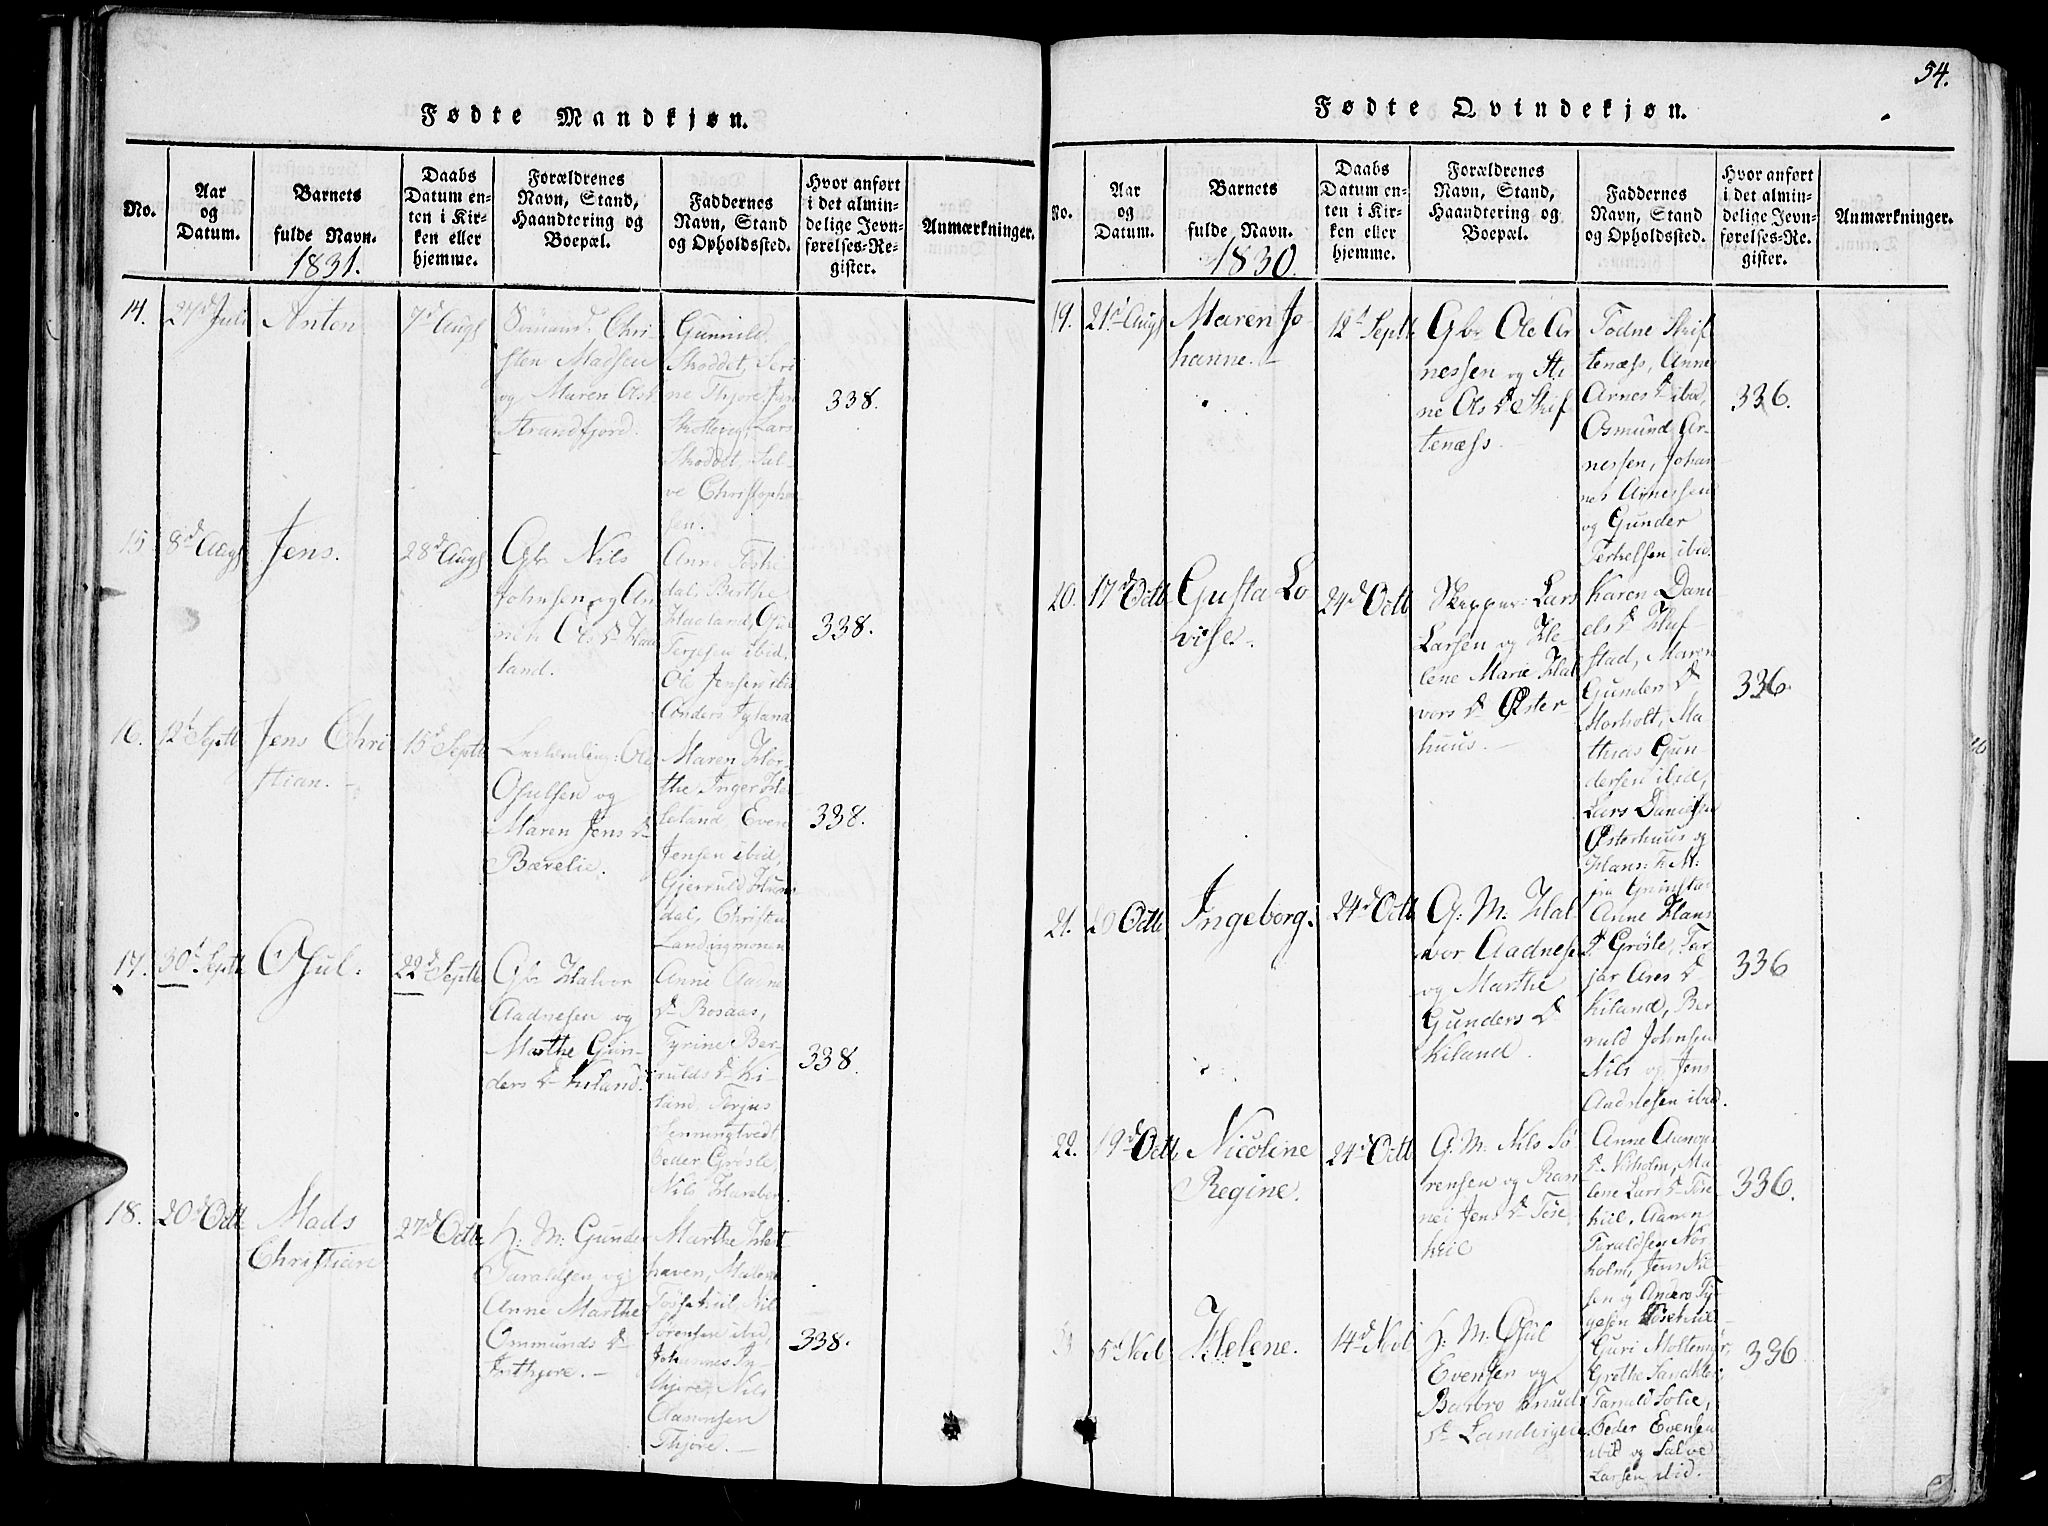 Fødte Mandkjøn.
No.
Aar
og
Datum.
Barnets
fulde Navn.
1831.
Daabs
Datum en-
ten i Kir-
ken eller
hjemme.
Forældrenes
Navn, Stand,
Haandtering og
Boepæl.
Faddernes
Navn, Stand
og Opholdssted.
Hvor anført
i det almin-
delige Jevn-
førelses-Re-
gister.
Anmærkninger.
14.
27d Juli
Anten
7d Augs
Sömand: Chri-
sten Madsen
og Maren
Strandfjord.
Gunnild
Skoddet, Seri
ne Thjore, Jen
Skottevig, Lars
Skoddet, Sal-
ve Christoph
sen.
338.
15
8d Augs
Jens.
28d Augs
Gbr Nils
Johnsen og An
nen Ols D. Haa
land.
Anne
dal, Berthe
Haaland, Ole
Terjesen ibid,
Ole Jensen ibi
Anders Tyland
338.
16.
12t Septb
Jens Chri
stian.
15d Septb
Ole
Osulsen og
Maren Jens D.
Bærelie.
Maren Hor-
the Inger He
leland Even
Jensen ibid,
Gjerruld
dal, Christen
Landvigmonen
338.
17.
30t Septb
Osul.
22d Septb
Gbr Halvor
Aadnesen og
Marthe Gun-
ders D. Kiland.
Anne Aadne
D. Rosaas,
Tyrine Ber-
rulds D. Ki-
land, Terjus
Jenningtvedt
Peder Grösle,
Nils
338.
18.
20d Octb
Mads
Christian
27d Octb
H: M: Gunde
Taraldsen og
Anne Marthe
Ommunds D.
Inthjore.
Marthe Hest-
haven, Malene
Töske Kiil, Nil
Sörensen ibid,
Johannes Ty-
thjore, Nils
Aamonsen
Thjore.
338.
54.
Fødte Qvindekjøn.
No.
Aar
og
Datum.
Barnets
fulde Navn.
1830.
Daabs
Datum en-
ten i Kir-
ken eller
hjemme.
Forældrenes
Navn, Stand,
Haandtering og
Boepæl.
Faddernes
Navn, Stand
og Opholdssted.
Hvor anført
i det almin-
delige Jevn-
førelses-Re-
gister.
Anmærkninger.
19.
21d Augs
Maren Jo-
hanne.
12t Septb
Gbr Ole Ar
nessen og Sti
ne Ols D. Skif
tenæss.
Todne Skif
tenæss, Anne
Arnes D. ibid,
Osmund Ar-
nessen, Johan
nes Arnessen
og Gunder
Terkelsen ibid.
336.
20.
17d Octb
Gusta Lo
vise.
24d Octb
Skipper: Lars
Larsen og He-
lene Marie Hal
vors D. Öster-
huus.
Karen Dani
els D. Haf-
stad, Maren
Gunders D.
Morholt, Ma-
thias Gun
dersen ibid,
Lars Danielsen
Österhuus og
Hans: K M:
fra Grimsta
336.
21.
20 Octb
Ingeborg.
24d Octb
G: M: Hal
vor Aadnese
og Marthe
Gunders D.
Kiland.
Anne Hans
D. Grösle, Tar
jar Ares D.
Kiland, Ber
ruld Johnsen
Nils og Jens
Aadnesen ibid.
336
22.
19d Octb
Nicoline
Regine.
24d Octb
G: M: Nils Sö
rensen og Ran
nei Jens D. Töse
kiil
Anne Aamon
D. Norholm, Ma
lene Lars D. Töse
kiil, Aanen
Taraldsen Nör
holm, Jens Ni-
sen og Anders Ty-
gesen Tösekiil
336.
5d Novb
Helene.
14d Novb
H: M: Osul
Evensen og
Barbro Knud
D. Landvigen
Guri Moltemyr,
Grethe Sandkler,
Tarrald Solie,
Peder Evensen
ibid og Salve
Larsen ibid.
336